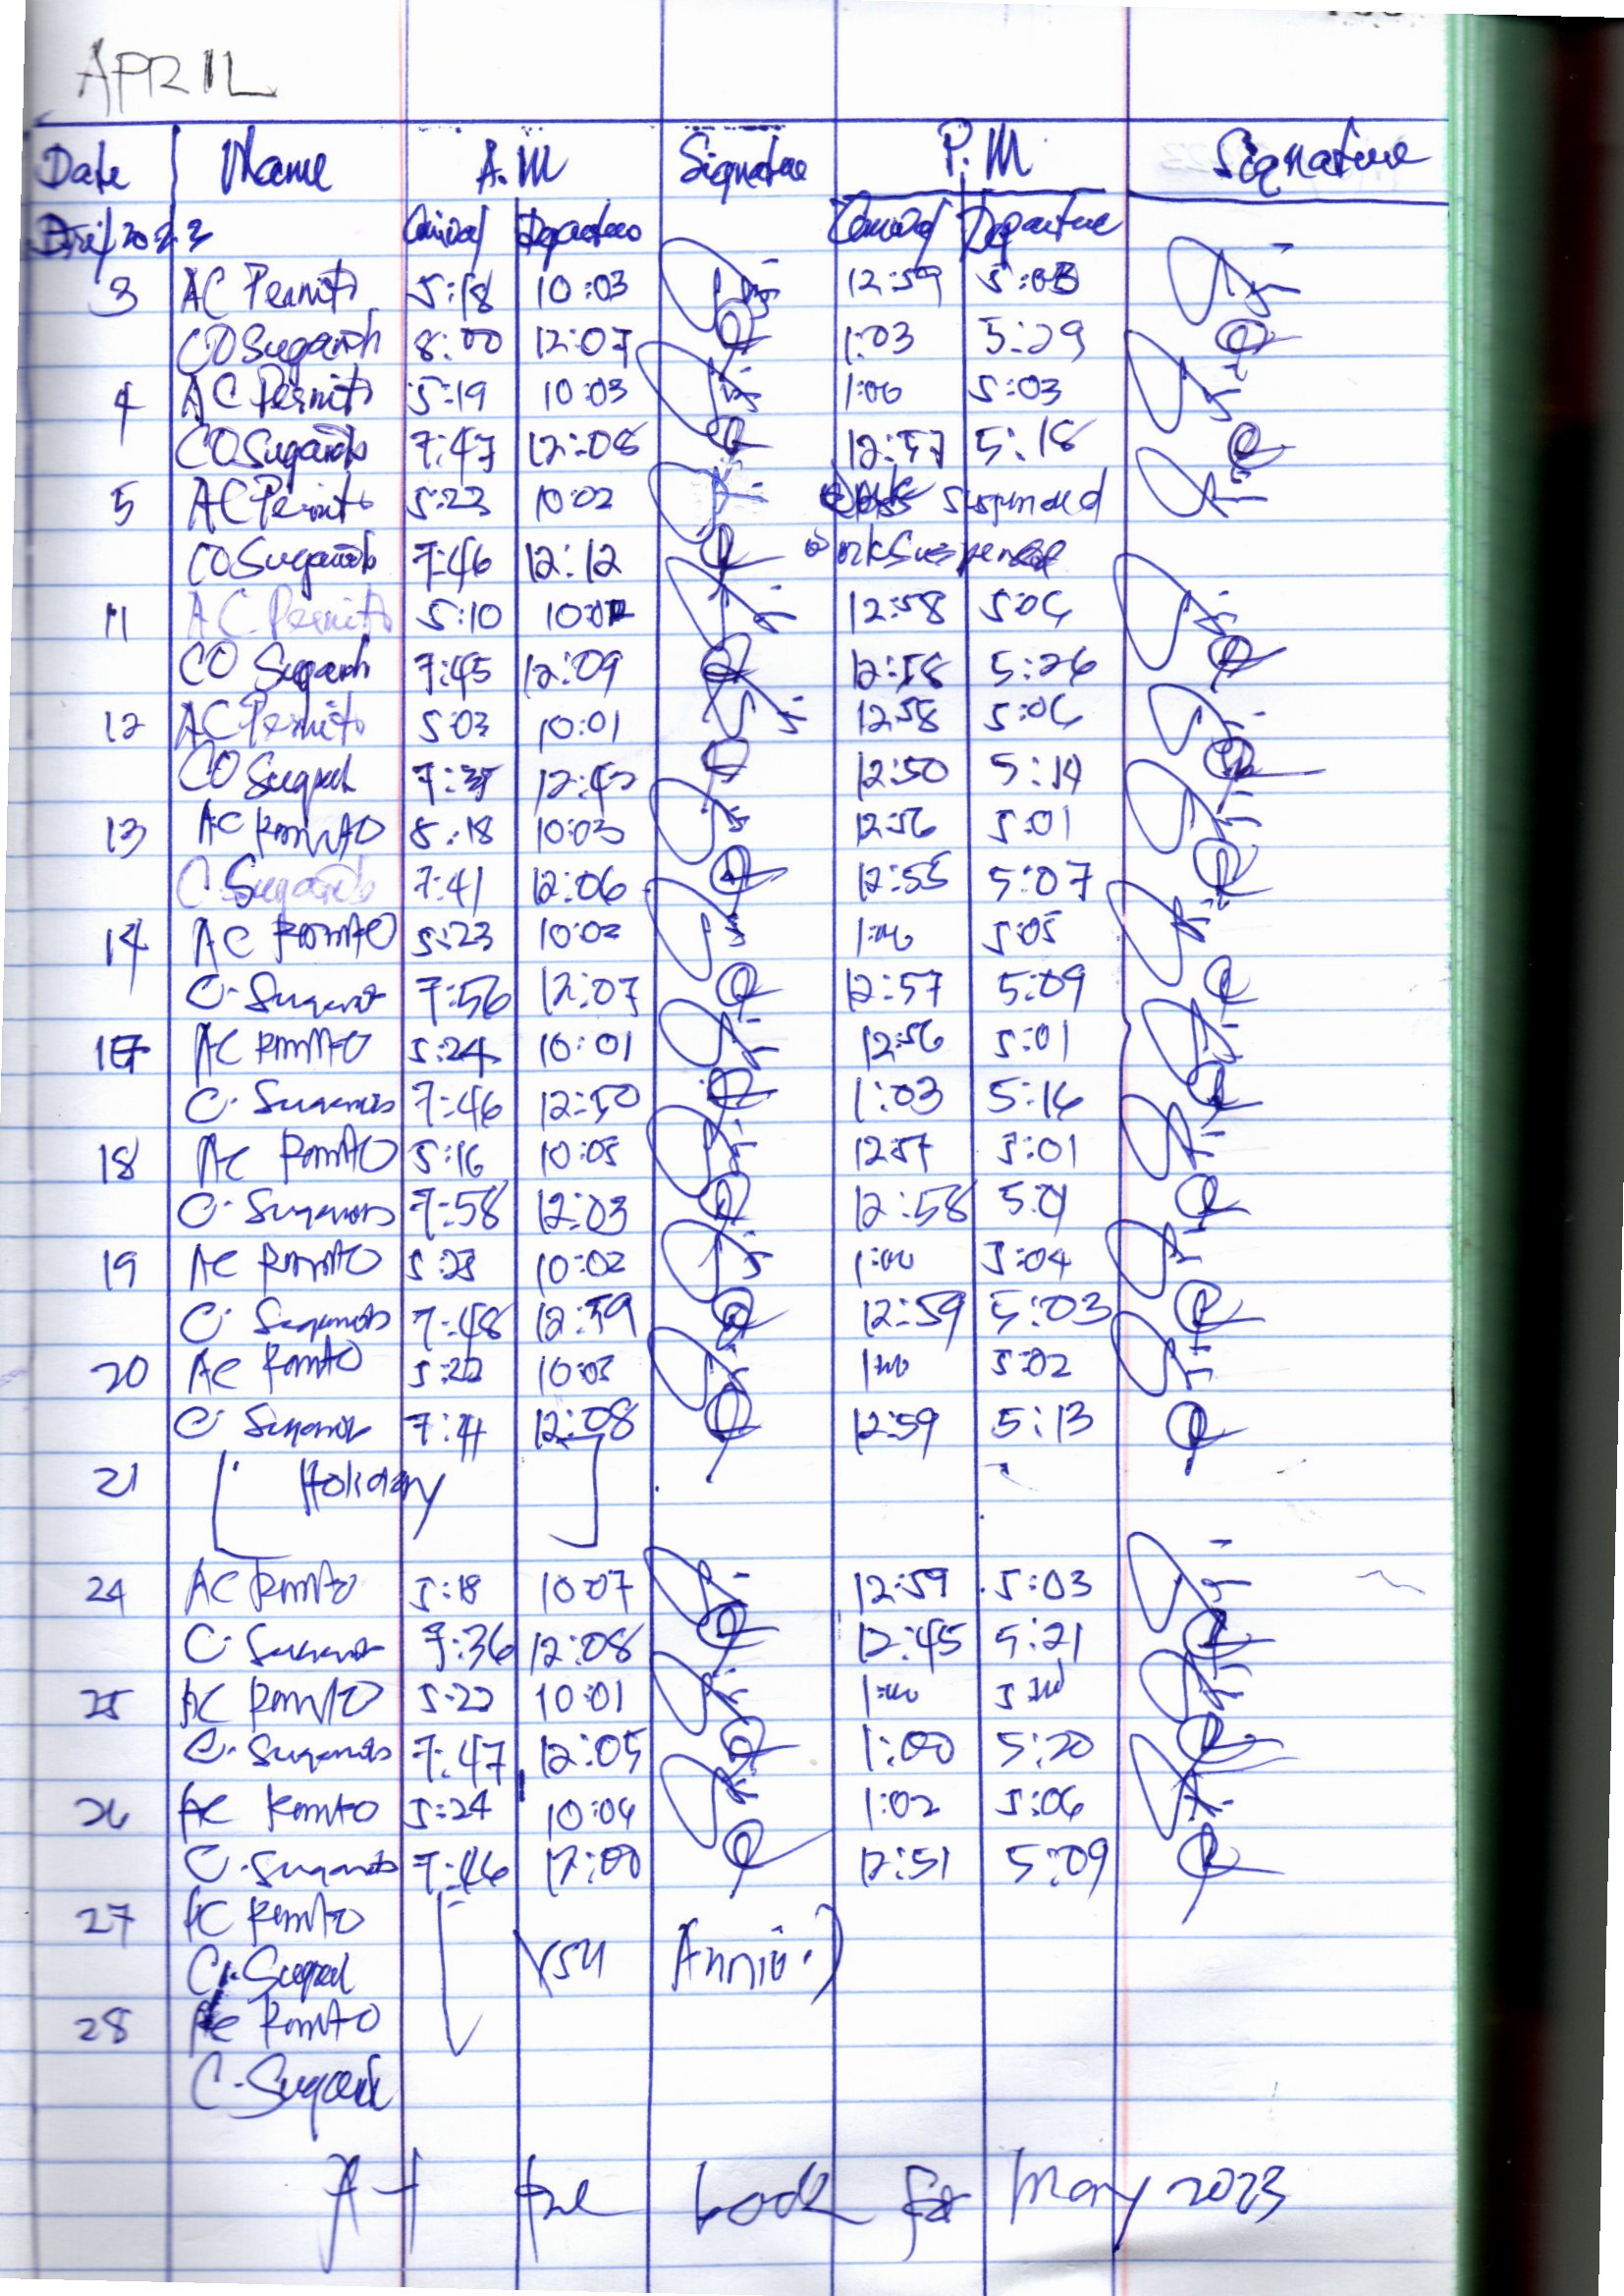 APRIL
Date Name A.M Signature P.M Signature
2023 Arrival Departure Arrival Departure
3 AC Pernito 5:18 10:03 12:59 5:03
CO Sugando 8:00 12:07 1:03 5:29
4 AC Pernito 5:19 10:03 1:00 5:03
CO Sugando 7:47 12:08 12:57 5:18
5 AC Pernito 5:23 10:02 Suspended
CO Sugando 7:46 12:12 Work Suspended
11 AC Pernito 5:10 12:58 5:06
CO Sugando 7:45 12:09 12:58 5:26
12 AC Pernito 5:03 10:01 12:58 5:06
CO 12:50 5:14
13 AC Pernito 5:18 10:03 12:56 5:01
C Sugando 7:41 12:06 12:55 5:07
14 AC Pernito 5:23 10:02 1:00 5:05
C. 7:56 12:07 12:57 5:09
17 AC Pernito 5:24 10:01 12:56 5:01
C. Sugando 7:46 12:50 1:03 5:16
18 AC Pernito 5:16 10:05 12:57 5:01
C. Sugando 7:58 12:03 12:58 5:01
19 AC Pernito 5:23 10:02 1:00 5:04
C. Sugando 7:48 12:59 12:59 5:03
20 AC Pernito 5:22 10:03 1:00 5:02
C. 7:41 12:08 12:59 5:13
21 Holiday
24 AC Pernito 5:18 10:07 12:59 5:03
C. 7:36 12:08 12:45 5:21
25 AC Pernito 5:22 10:01 1:00 5:00
C. Sugando 7:47 12:05 1:00 5:20
26 AC Pernito 5:24 10:04 1:02 5:06
C. Sugando 7:46 12:00 12:51 5:09
27 AC Pernito
C. VSU Anniv.
28 AC Pernito
C.
book for May 2023